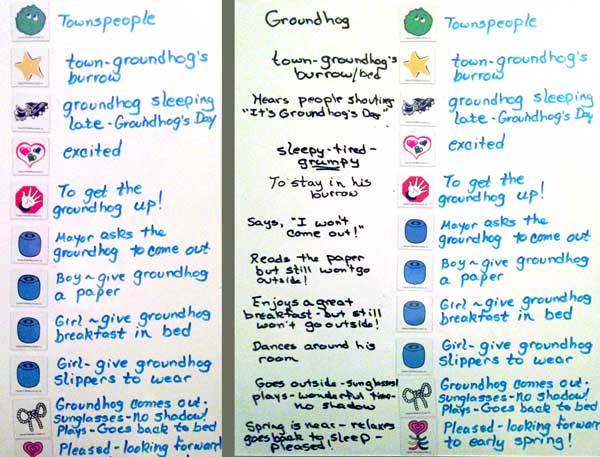 Townspeople
town-groundhog's
burrow
groundhog sleeping
late - Groundhog's Day
excited
To get the
groundhog up!
Mayor asks the
groundhog to come out
Boy ~ give groundhog
a paper
Girl ~ give groundhog
breakfast in bed
Girl - give groundhog
slippers to wear
Groundhog comes out.
Sunglasses - No shadow!
Plays - Goes back to bed
Pleased - looking forward
Groundhog
town-groundhog's
burrow/bed
Hears people shouting
"It's Groundhog's Day"
sleepy-tired-
grumpy
To stay in his
burrow
Says, "I won't
come out!"
Reads the paper
but still won't go
outside!
Enjoys a great
breakfast - but still
won't go outside!
Dances around his
room
Goes outside - sunglasses!
plays - wonderful time -
no shadow
Spring is near - relaxes
goes back to sleep -
pleased!
Townspeople
town-groundhog's
burrow
groundhog sleeping
late - Groundhog's Day
excited
To get the
groundhog up!
Mayor asks the
groundhog to come out
Boy ~ give groundhog
a paper
Girl ~ give groundhog
breakfast in bed
Girl - give groundhog
slippers to wear
Groundhog comes out.
Sunglasses - No shadow!
Plays - Goes back to bed
Pleased - looking forward
to early spring!